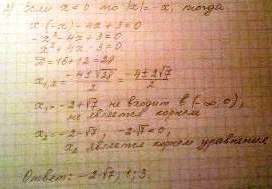 2) Если x<0 то |x|=-x, тогда
x(-x)-4x+3=0
-x²-4x+3=0
x²+4x-3=0
D=16+12=28
x₁,₂ = (-4±√28)/2 = (-4±2√7)/2
x₁=-2+√7 не входит в (-∞;0),
не является корнем
x₂=-2-√7, -2-√7<0,
x₂ является корнем уравнения
Ответ: -2-√7; 1; 3.